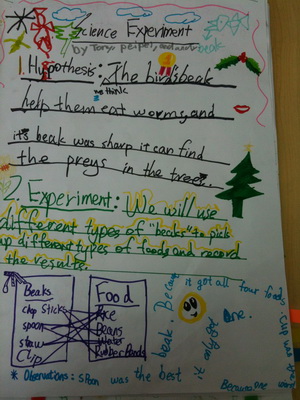 Science Experiment
by Toryn, peipei, and
1. Hypothesis: The bird's beak
we think
help them eat worms, and
it's beak was sharp it can find
the preys in the tree.
2. Experiment: We will use
different types of "beaks" to pick
up different types of foods and record
the results.
Beaks
chop sticks
spoon
straw
Clip
Food
Rice
Beans
Water
Rubber Bands
* Observations: spoon was the best
beak. Because it got all four foods.
it only got one.
Because